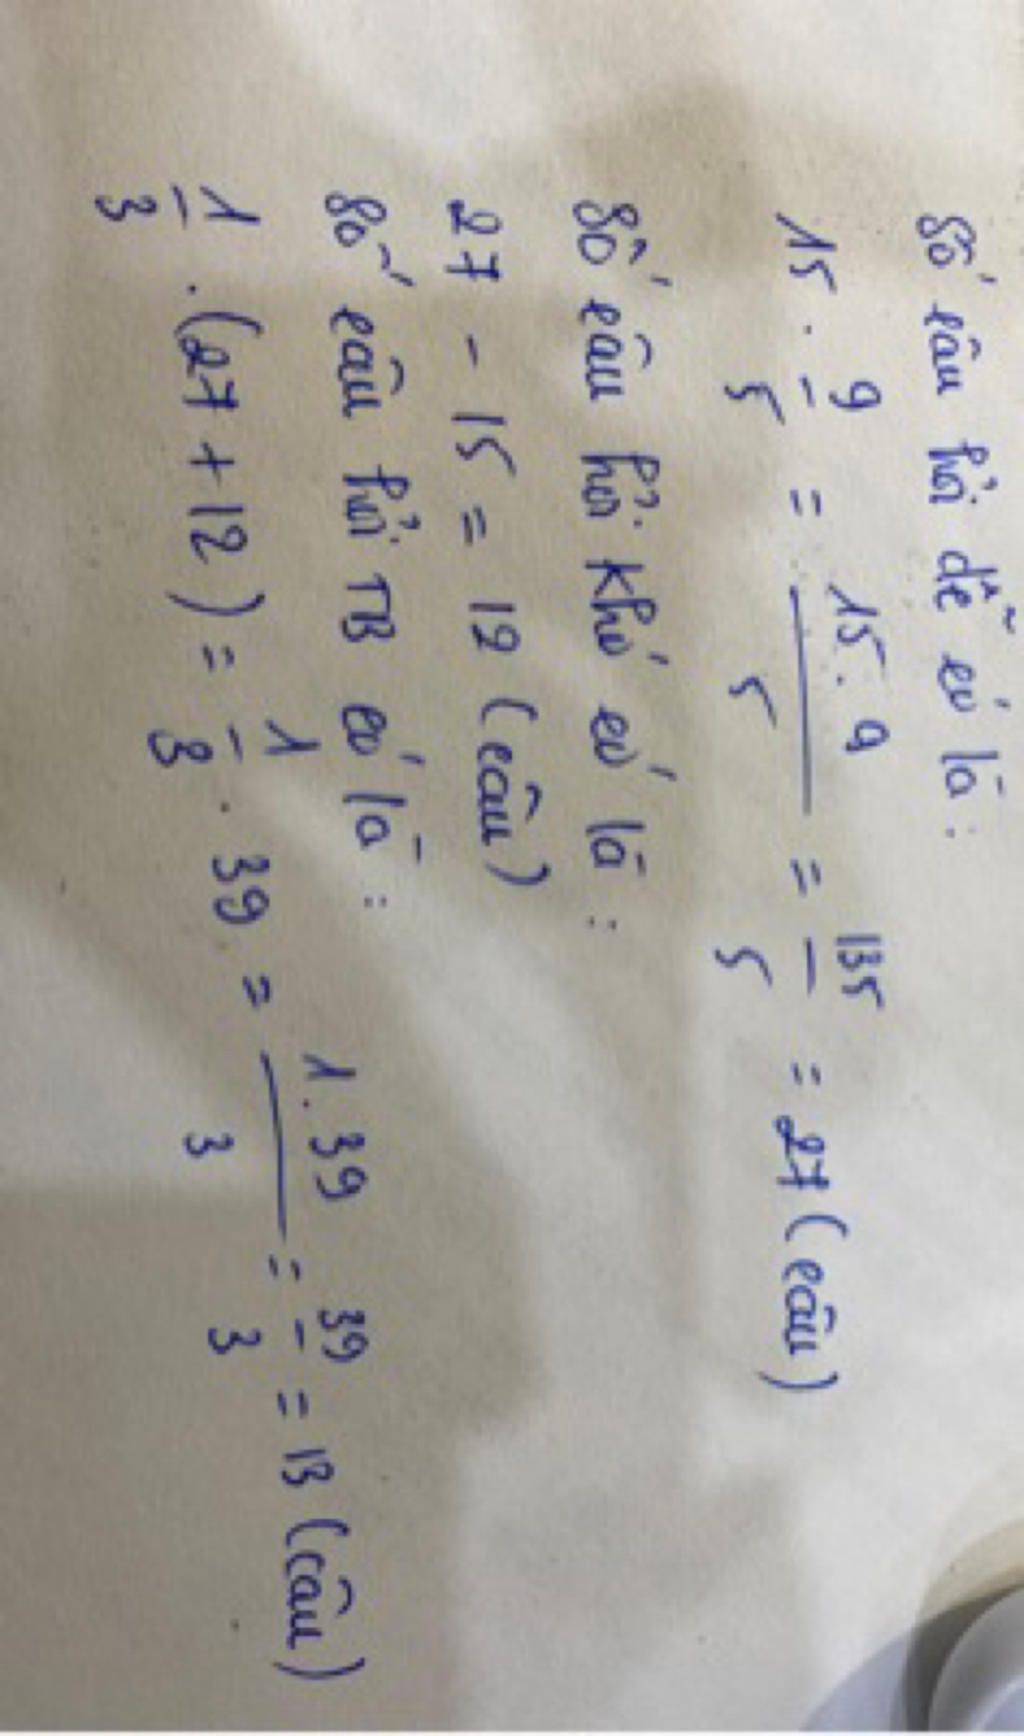 Số câu hỏi dễ có là :
15 . 9/5 = 15.9/5 = 135/5 = 27 (câu)
Số câu hỏi khó có là :
27 - 15 = 12 (câu)
Số câu hỏi TB có là :
1/3 . (27 + 12) = 1/3 . 39 = 1.39/3 = 39/3 = 13 (câu)